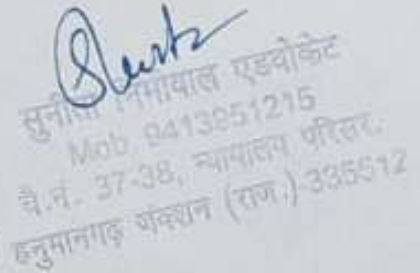 सुनीता निमीवाल एडवोकेट
Mob. 9413951215
चै.नं. 37-38, न्यायालय परिसर,
हनुमानगढ़ जंक्शन (राज.) 335512